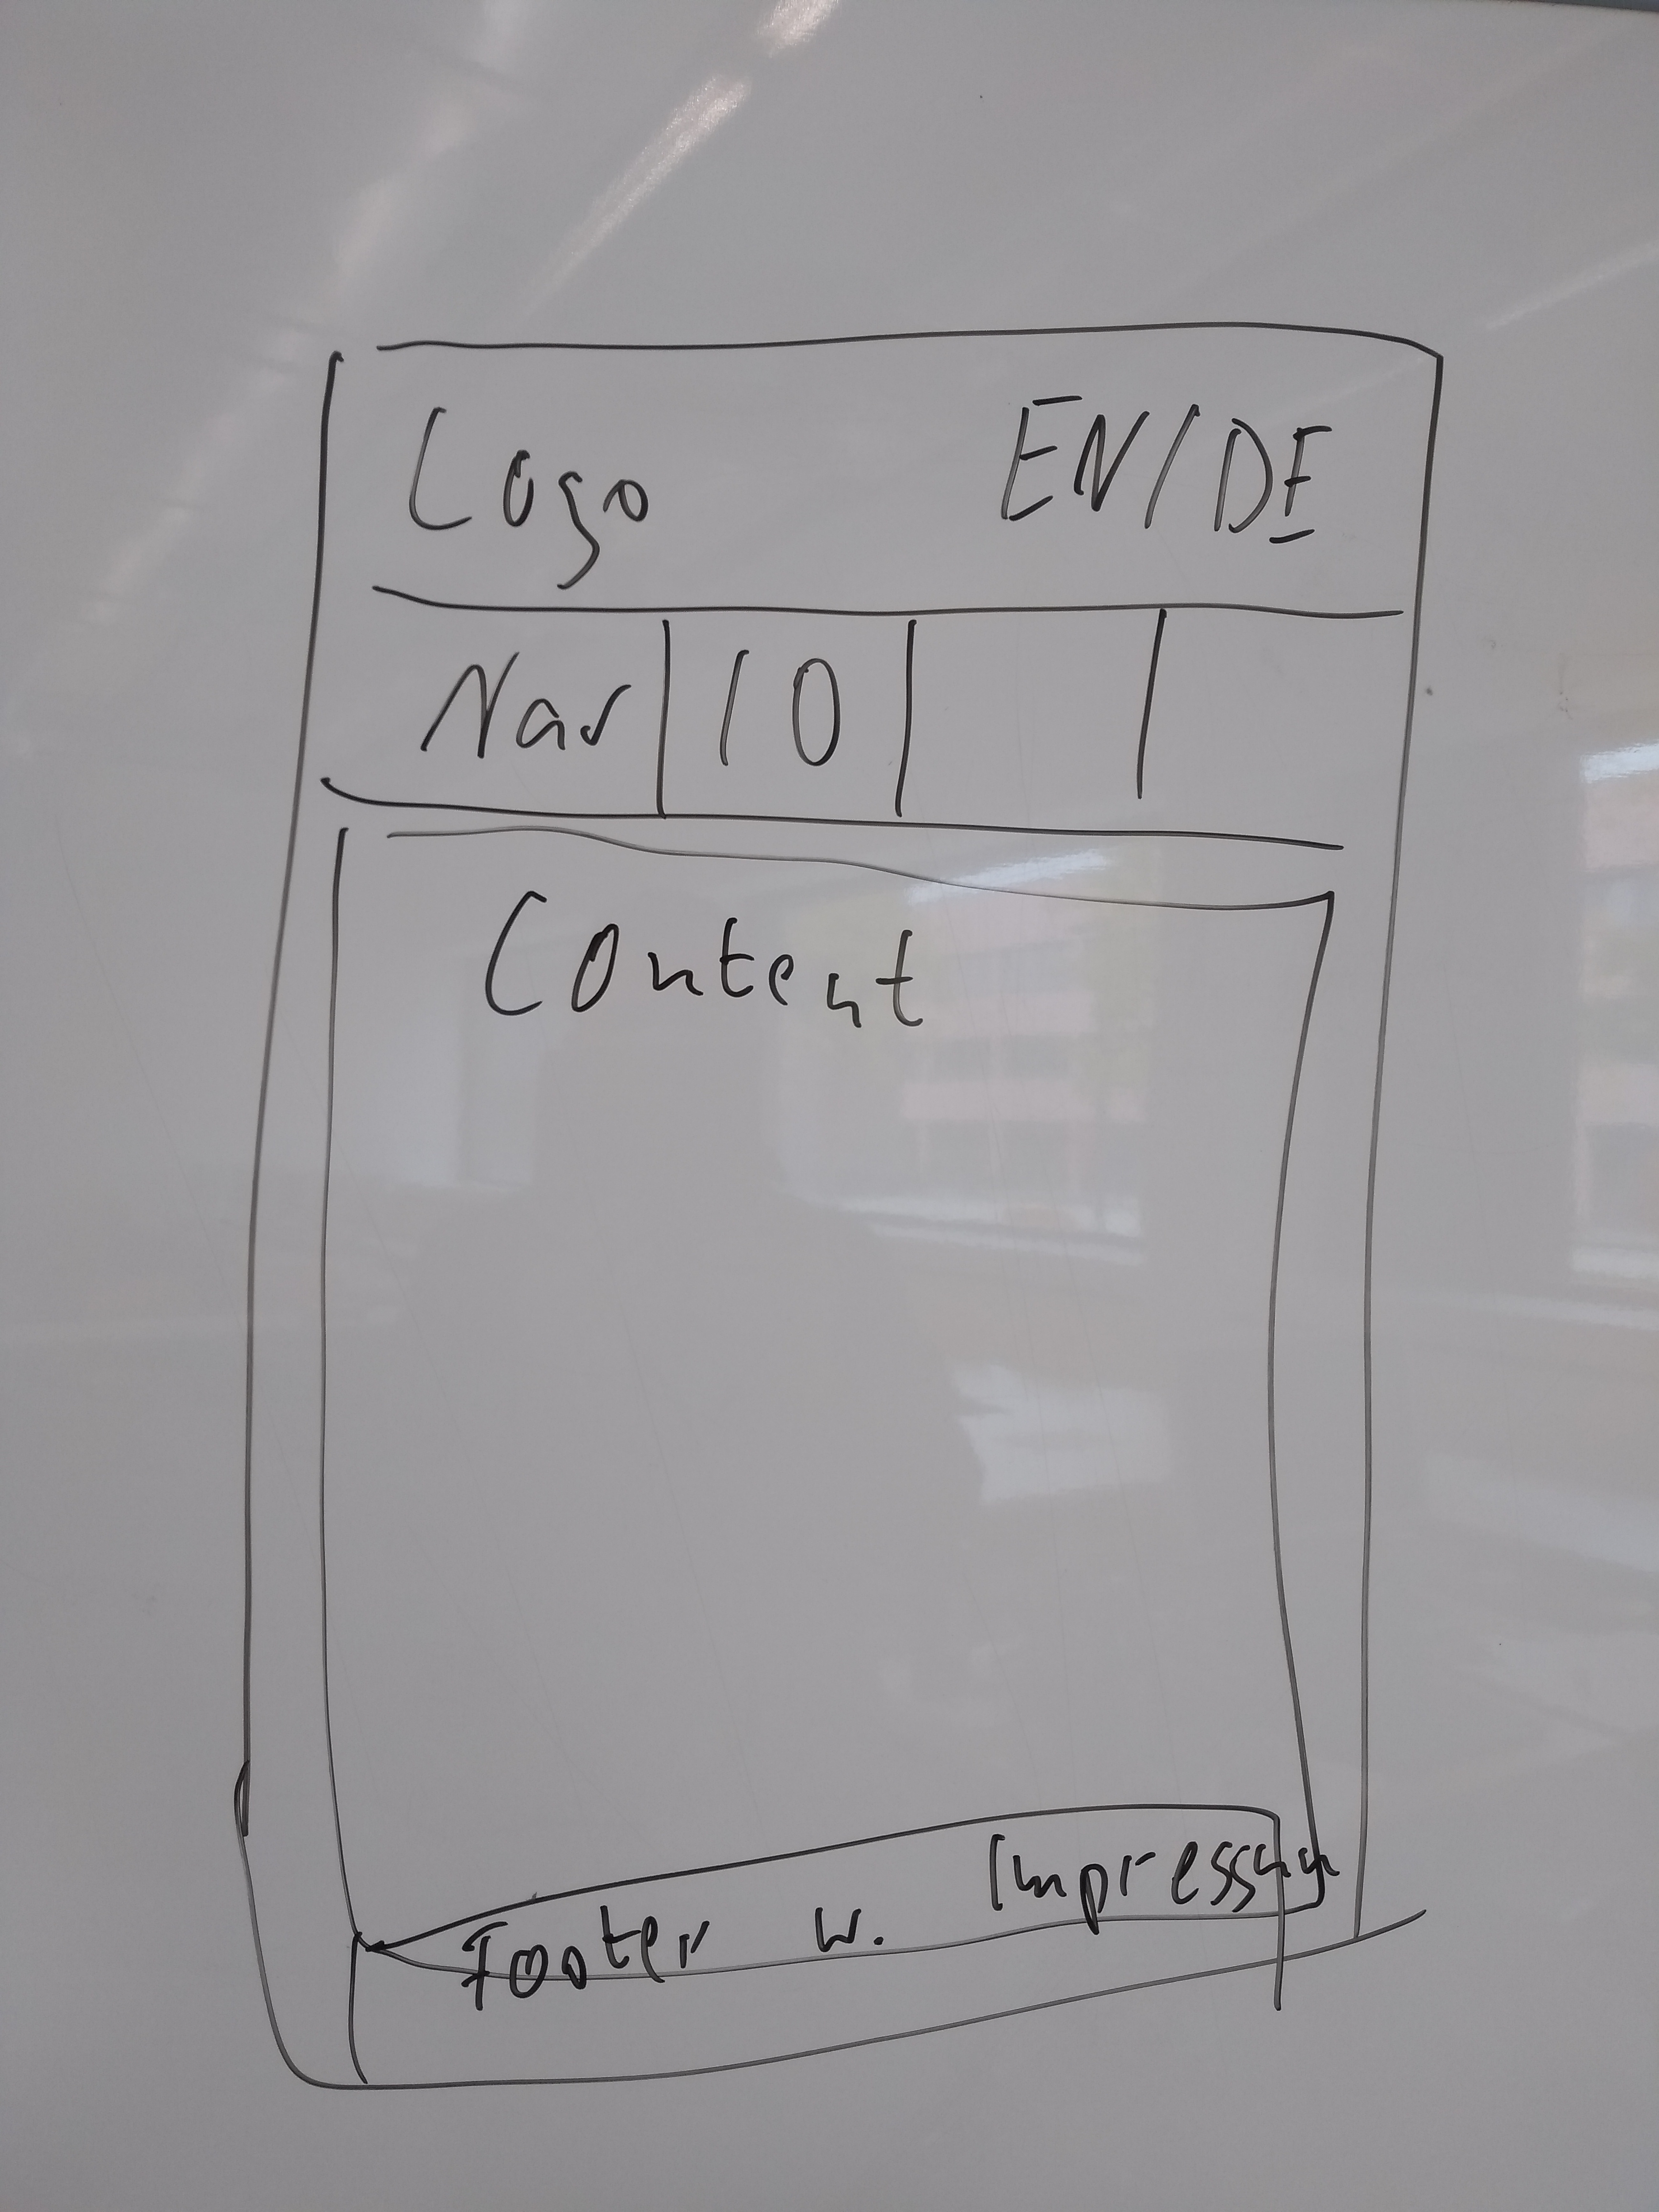 Logo EN/DE
Nav 10
Content
Footer w. Impressum